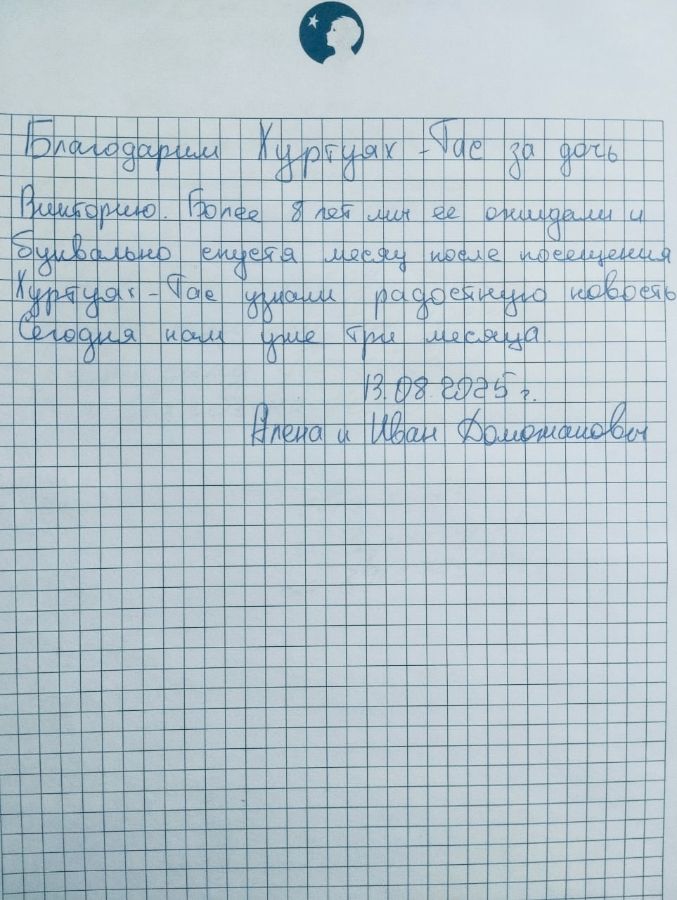 Благодарим Хуртуях-Тас за дочь
Викторию. Более 8 лет мы ее ожидали и
буквально спустя месяц после посещения
Хуртуях-Тас узнали радостную новость
Сегодня нам уже три месяца.
13.08.2025 г.
Алена и Иван